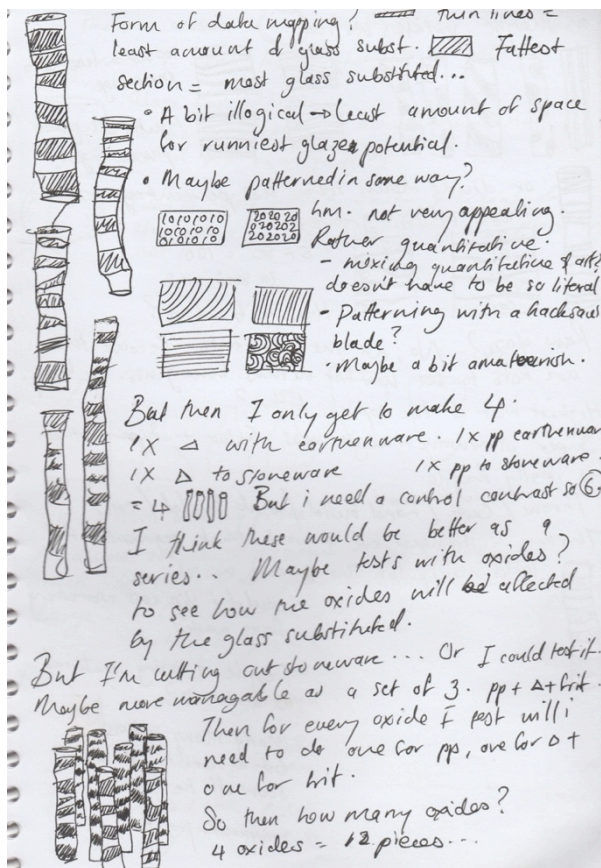 Form of data mapping? thin lines =
least amount of glass subst. Fattest
section = most glass substituted...
• A bit illogical → least amount of space
for runniest glaze potential.
• Maybe patterned in some way?
10101010
10101010
01010 10
202020
020202
202020
hm. not very appealing.
Rather quantitative.
- mixing quantitative & art?
doesn't have to be so literal
- Patterning with a hacksaw
blade?
• Maybe a bit amateurish.
But then I only get to make 4.
1X Δ with earthenware. 1x pp earthenwar
1X Δ to stoneware 1x pp to stoneware.
= 4 But i need a control contrast so 6.
I think these would be better as a
series.. Maybe tests with oxides?
to see how the oxides will be affected
by the glass substituted.
But I'm cutting out stoneware... Or I could test it.
Maybe more managable as a set of 3. pp + Δ + frit.
Then for every oxide I test will i
need to do one for pp, one for Δ +
one for frit.
So then how many oxides?
4 oxides = 12 pieces...